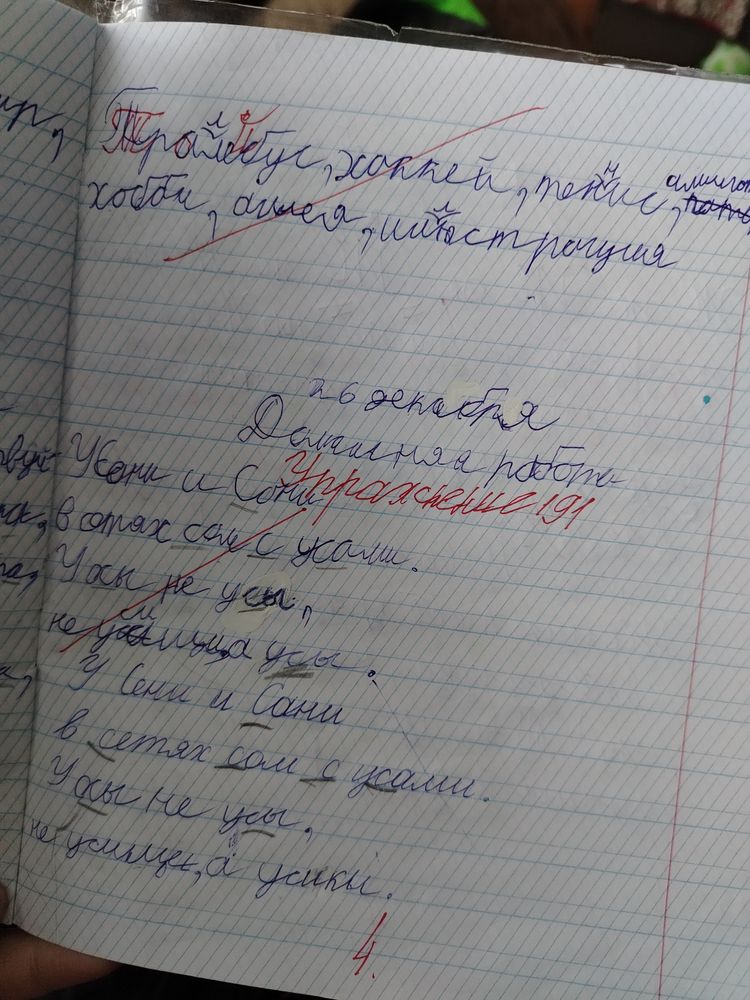 Тролейбус, хоккей, тенис,
хобби, аллея, иллюстрация
26 декабря
Домашняя работа
Упражнение 191
У Сони и Сони
в сетях сом с усами.
У осы не усы,
не усищи, а усы.
У Сени и Сани
в сетях сом с усами.
У осы не усы,
не усищи, а усики.
4.